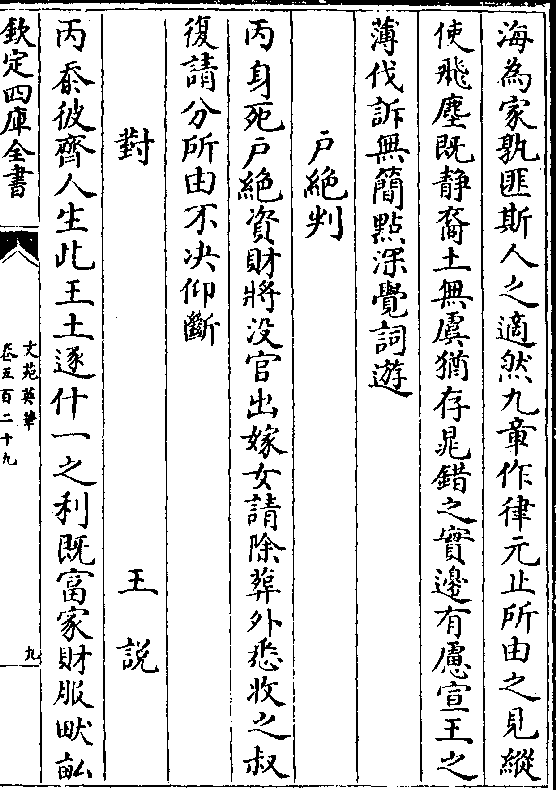 海為家孰匪斯人之適然九章作律元止所由之見縱
使飛塵既静裔土無虞猶存晁錯之實邊有慮宣王之
薄伐訴無簡點深覺詞遊
戶絶判
丙身死戶絶資財將没官出嫁女請除葬外悉收之叔
復請分所由不决仰斷
對 王説
丙忝彼齊人生此王土逐什一之利既富家財服畎畝
欽定四庫全書
文苑英華
卷五百二十九
九